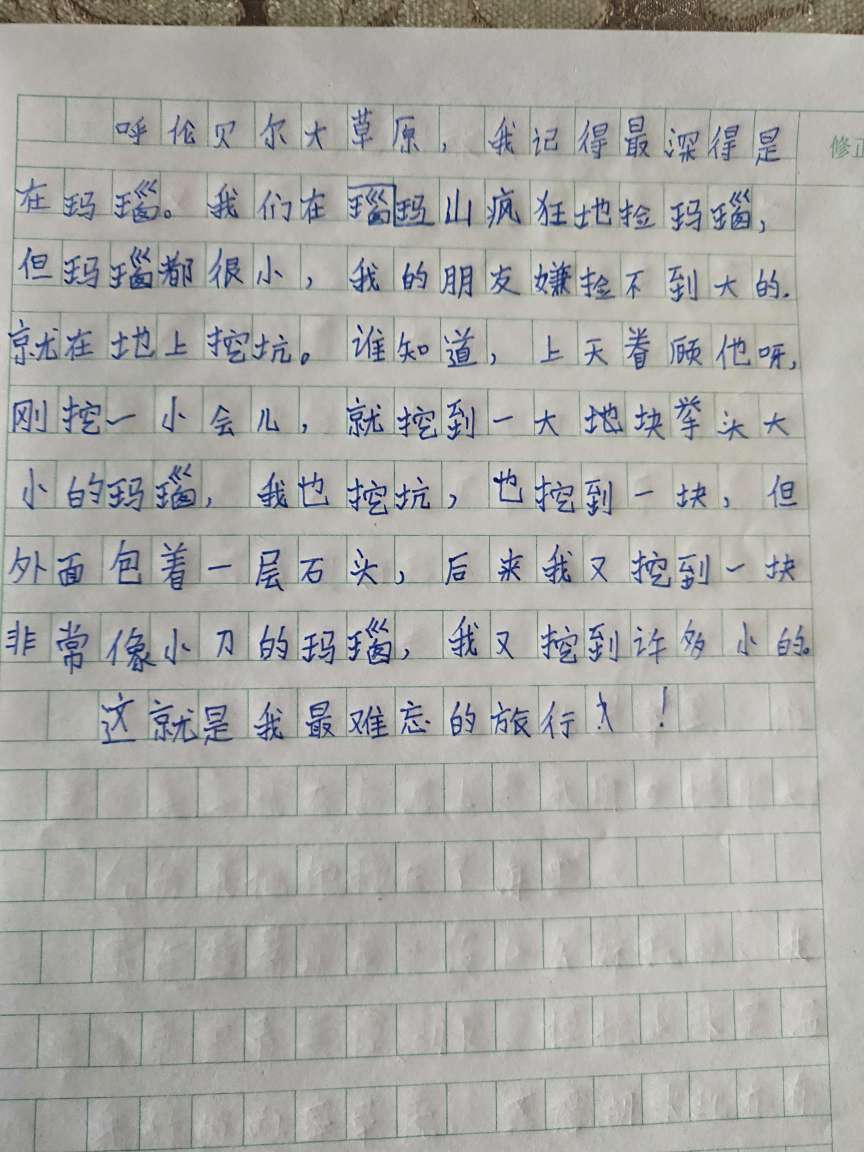 呼伦贝尔大草原，我记得最深得是
修正
在玛瑙。我们在瑙玛山疯狂地捡玛瑙，
但玛瑙都很小，我的朋友嫌捡不到大的.
就在地上挖坑。谁知道，上天眷顾他呀，
刚挖一小会儿，就挖到一大地块拳头大
小的玛瑙，我也挖坑，也挖到一块，但
外面包着一层石头，后来我又挖到一块
非常像小刀的玛瑙，我又挖到许多小的。
这就是我最难忘的旅行！